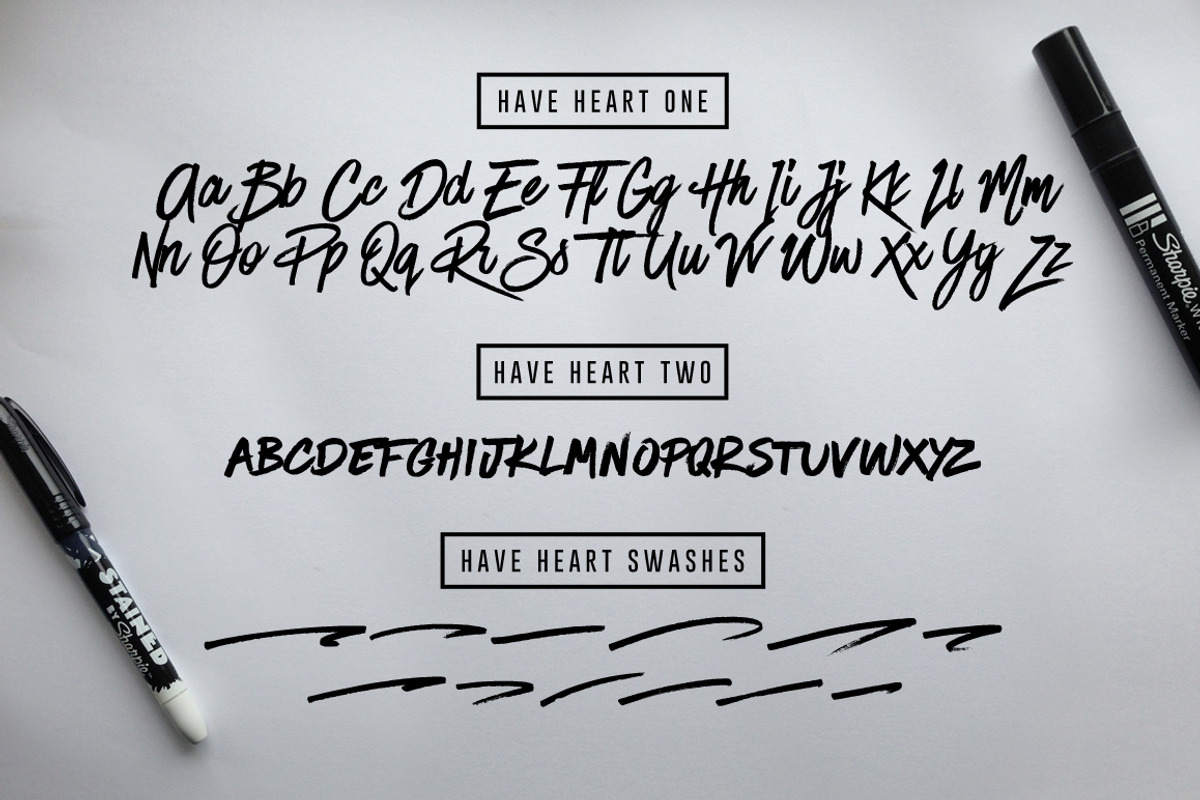 HAVE HEART ONE
Aa Bb Cc Dd Ee Ff Gg Hh Ii Jj Kk Ll Mm
Nn Oo Pp Qq Rr Ss Tt Uu Vv Ww Xx Yy Zz
HAVE HEART TWO
ABCDEFGHIJKLMNOPQRSTUVWXYZ
HAVE HEART SWASHES
Sharpie
Permanent Marker
STAINED
BY Sharpie